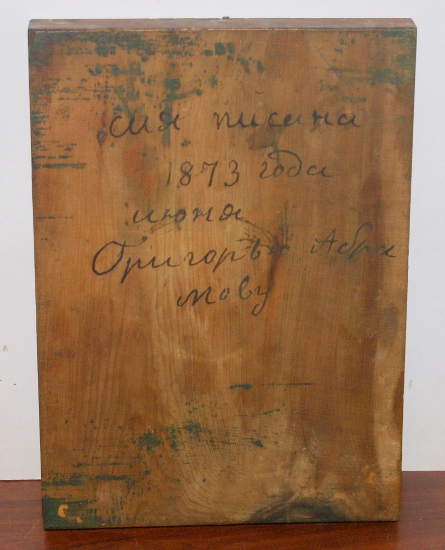 сия писана
1873 года
июня
Григорью Абра
мову